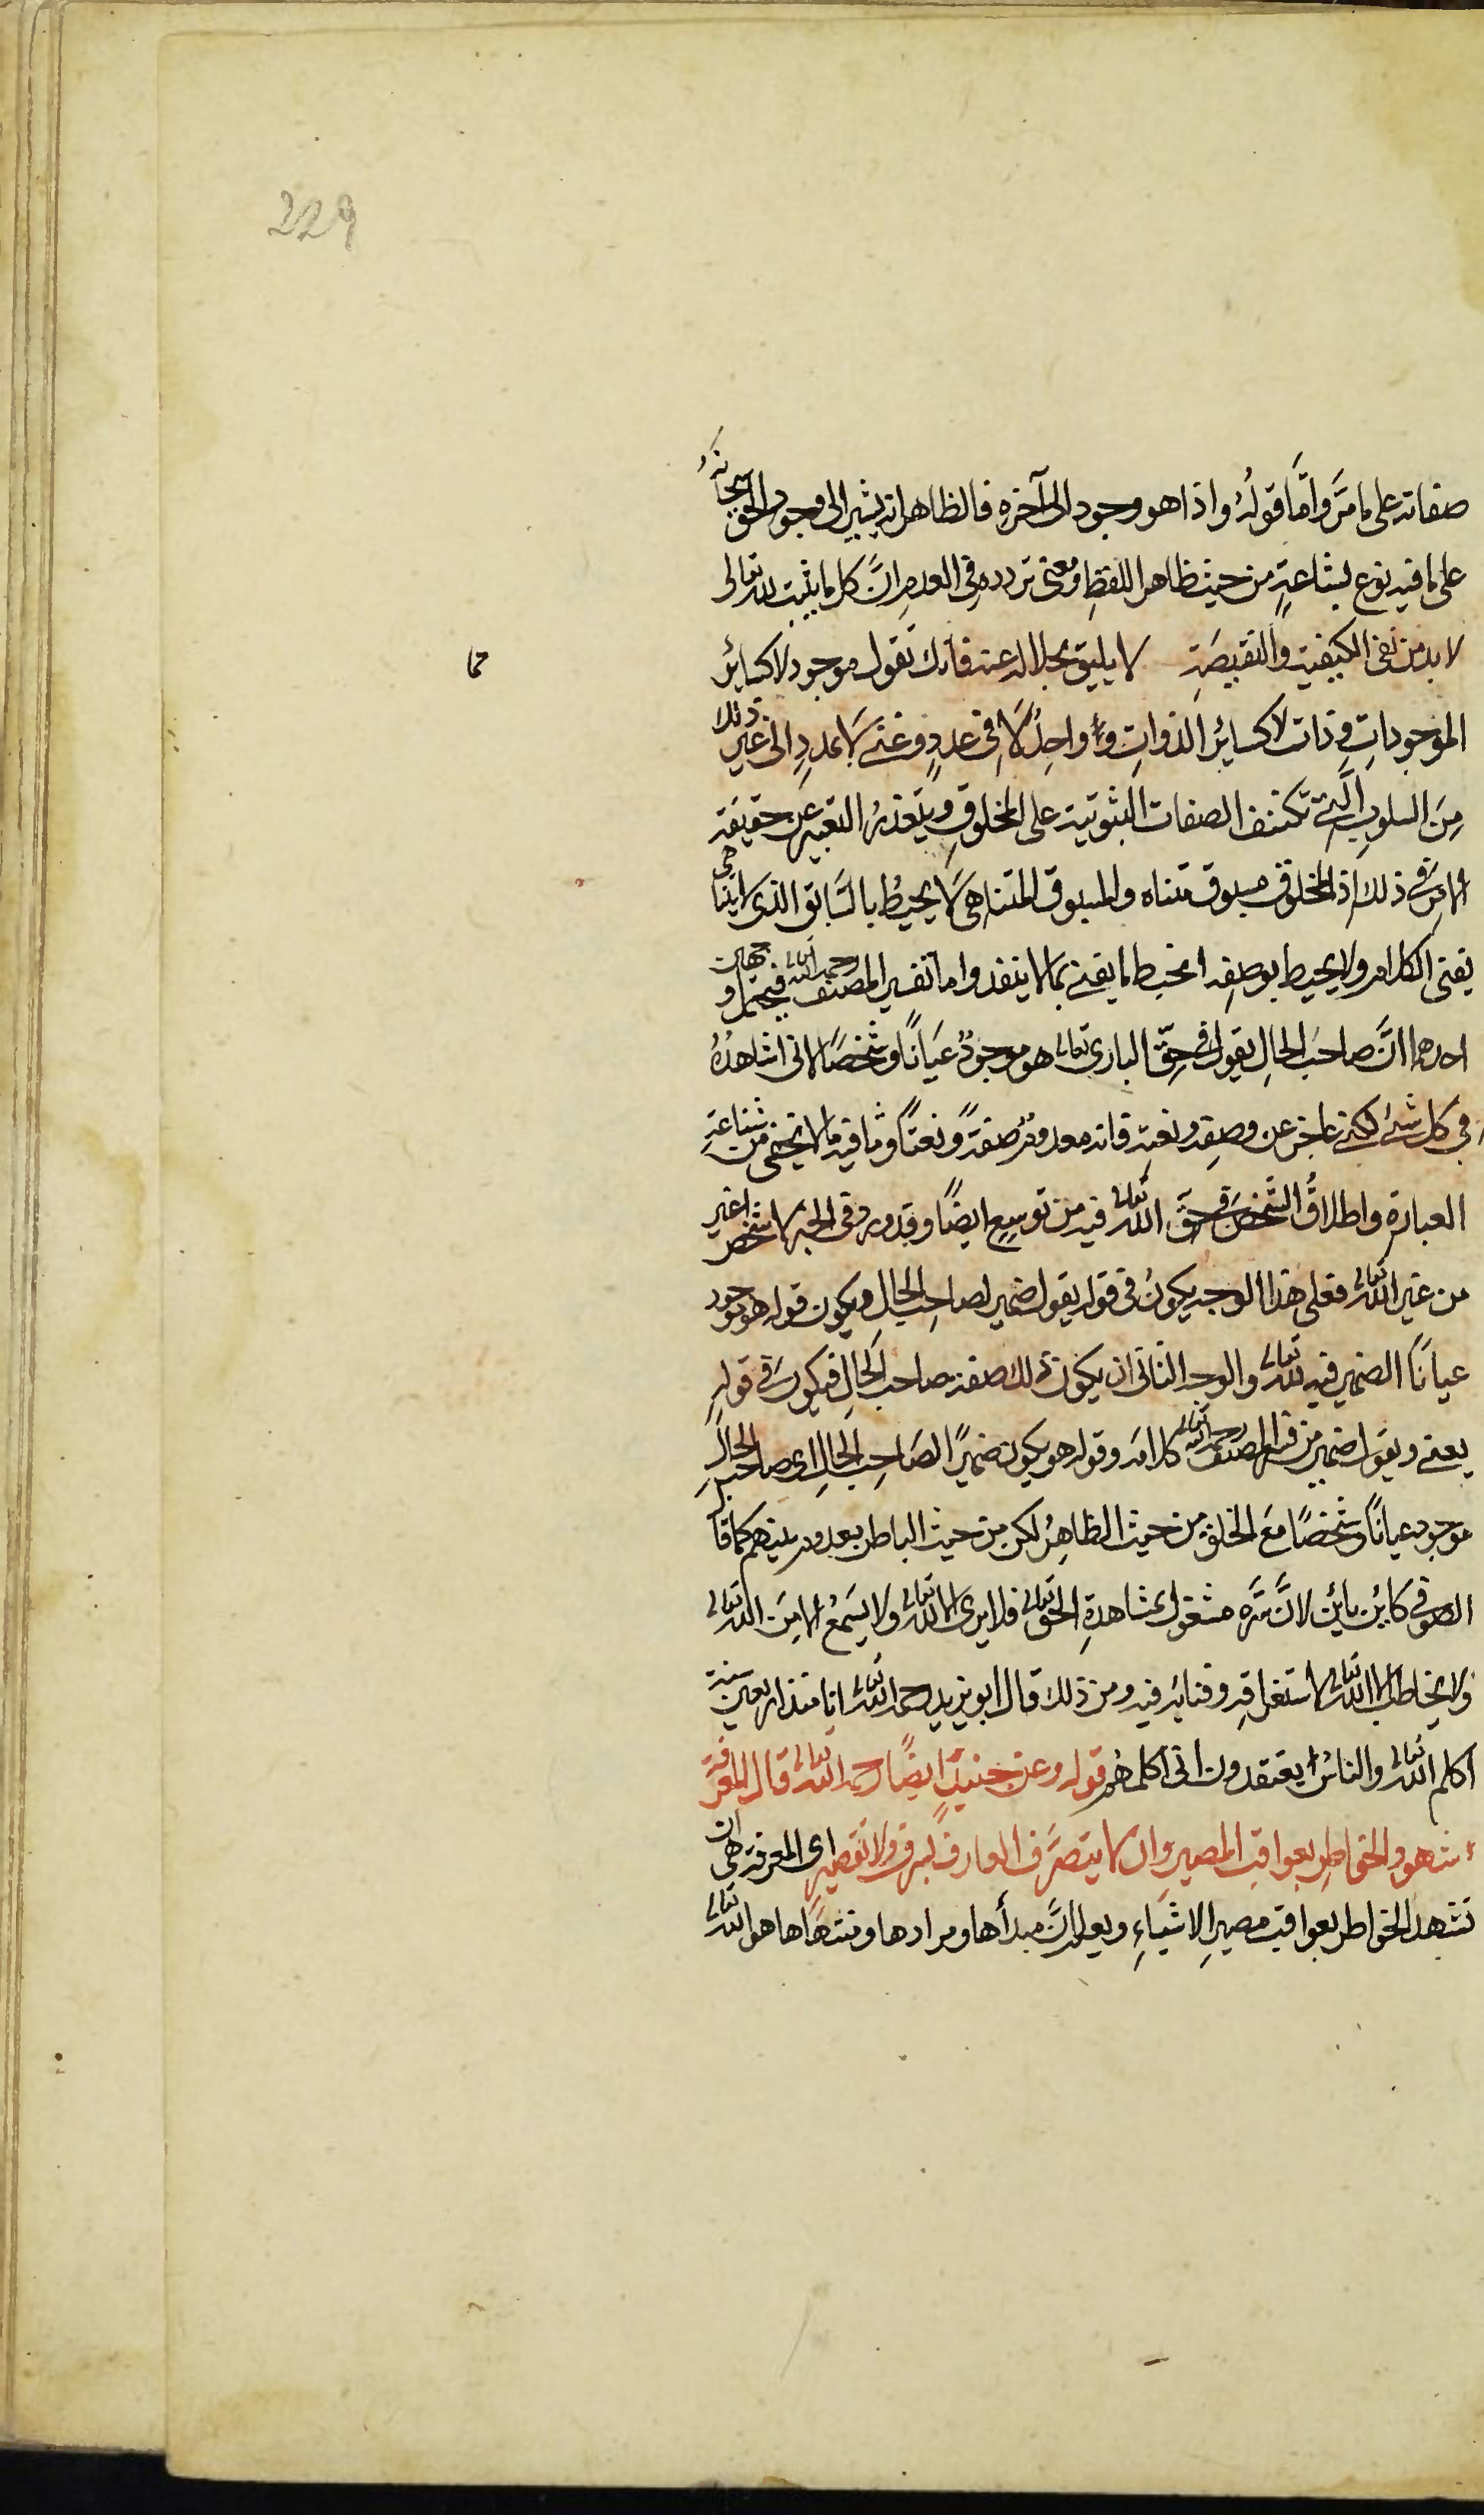 229
صفاته على ما مرّ وامّا قولهُ واذا هو وجود الى آخره فالظاهر انه يشير الى وجود الحق سبحانهُ
على ما فيه نوع بشاعةٍ من حيث ظاهر اللفظِ ومعنى تردده في العدمِ انَّ كل ما يثبت لله تعالى
لا بد من نفى الكيفية والنقيصَةِ لا يليق بجلاله عنه فانك تقول موجود لا كسائر
مما
الموجوداتِ وذات لا كسائر الذواتِ و واحِدٌ لَا فى عددٍ وغنى لَا بمددٍ الى غير ذلك
مِنَ السلوبِ الَّتى تكتنف الصفات الثبوتية على المخلوقِ ويتعذرُ التعبير عن حقيقة
الامرِ فى ذلك اذ المخلوق مسبوق متناه والمسبوق المتناهى لَا يحيطُ بالسَّابق الذى لا يتناهى
يفنى الكلام ولا يحيط بوصفِه ايحيط ما يفنى بما لا ينفد واما تفسير المصنف رحمه الله تعالى فيحتمل وجهان
احدهما انَّ صاحبَ الحالِ يقول فى حقّ البارى تعالى هو موجودٌ عيَانًا وشخصًا لانى اشاهدُهُ
فى كل شئ لكنى عاجز عن وصفِه ونعتِه فانه معدومٌ صفةً ونعتًا وثم فيه ما لا يخفى من شناعةِ
العبارة واطلاقُ الشَّخصِ فى حقّ الله تعالى فيه من توسِعٍ ايضًا وقد ورد فى الخبر لا شخص اغير
من غير الله تعالى فعلى هذا الوجه يكونُ فى قوله يقول ضمير لصاحِب الحالِ ويكون قوله هو موجود
عيانًا الضمير فيه لله تعالى والوجه الثانى ان يكون ذلك صفة صاحب الحالِ فيكون فى قولهِ
يعنى ويقول ضمير من قبل المصنف رحمه الله تعالى كلامه وقوله هو يكون ضميرًا لصَاحِب الحالِ اى صاحب الحالِ
موجود عيانًا وشخصًا مَعَ الخلق من حيث الظاهِرُ لكن من حيث الباطن بعد وبر بينهم كما قال
الصوفى كائن بائن لانَّ سرَّه مشغول بمشاهدةِ الحق تعالى فلا يرى الا الله تعالى ولا يسمعُ الا مِنَ الله تعالى
ولا يخاطب الا الله تعالى لاستغراقِه وفنائه فيه ومن ذلك قال ابو يزيد رحمه الله تعالى انا منذ اربعين سنة
اكلم الله تعالى والناسُ يعتقدون انى اكلمهُم قوله وعن جنيدٍ ايضًا رحمه الله تعالى قال المعرفة
شهود الخواطِر بعواقب المصير وان لا يتصرَّف العارف بسرف ولا تقصيرٍ اى المعرفة هى ان
تشهد الخواطر بعواقب مصيرِ الاشيَاءِ ويعلم انَّ مبدأها ومرادها ومنتهاها هو الله تعالى